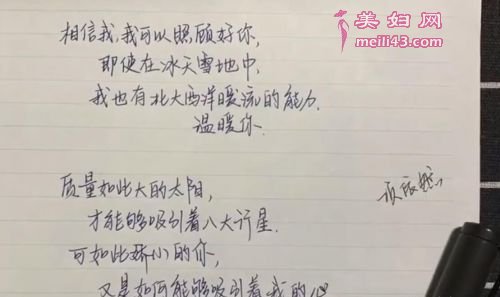 美妇网
meili43.com
相信我,我可以照顾好你,
即使在冰天雪地中,
我也有北大西洋暖流的能力.
温暖你.
质量如此大的太阳,
才能够吸引着八大行星.
可如此娇小的你,
又是如何能够吸引着我的心